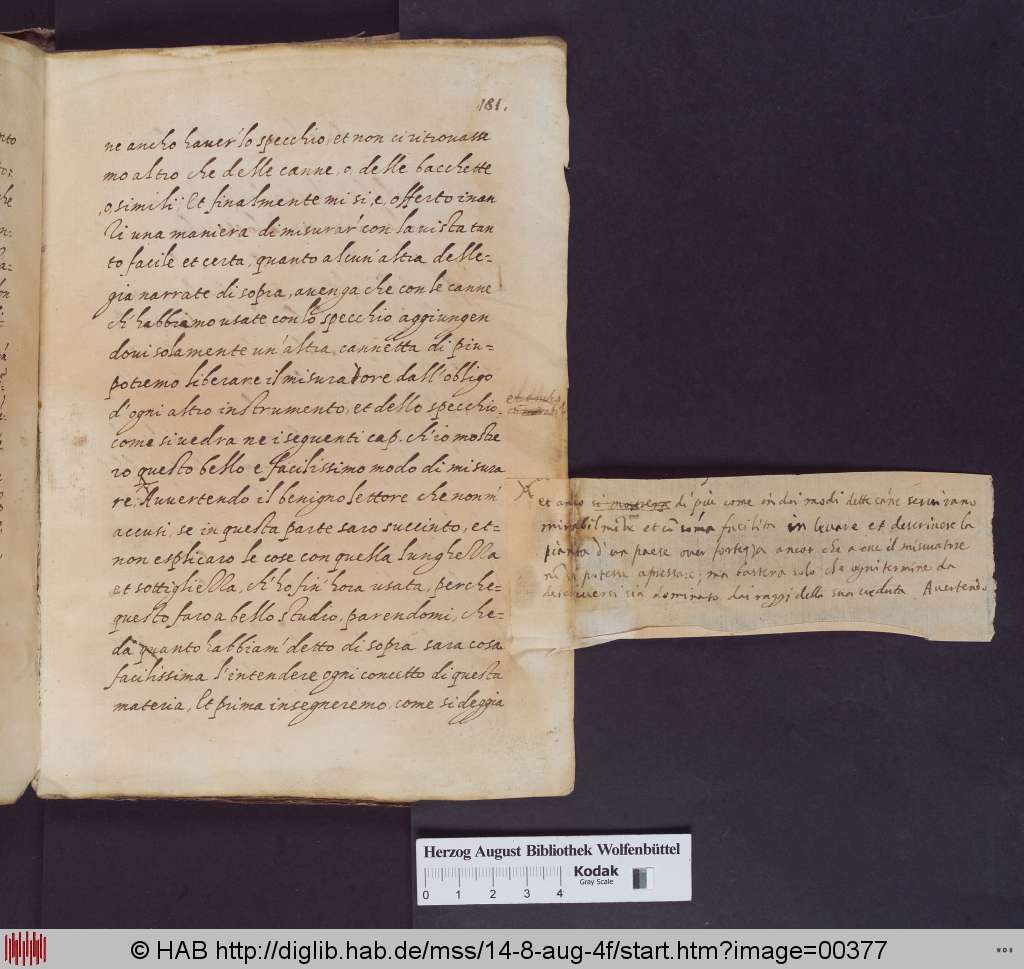 181.
ne ancho hauer lo specchio, et non ci ritrouasse
mo altro che delle canne, o, delle bacchette
,o simili; Et finalmente mi si, e, offerto inan
ti una maniera di misurar' con la uista tan
to facile et certa, quanto alcun'altra delle-
gia narrate di sopra, auenga che con le canne
ch'habbiamo usate con lo specchio aggiungen
doui solamente un'altra cannetta di piu-
potremo liberare il misuratore dall'obligo
d'ogni altro instrumento, et dello specchio,
come si uedra ne i seguenti cap. ch'io mostre
ro questo bello e facilissimo modo di misura
re; Auuertendo il benigno lettore che non m'
accusi, se in questa parte saro succinto, et-
non esplicaro le cose con quella lunghezza
et sottigliezza, ch'ho fin'hora usata, perche-
questo faro a bello studio, parendomi, che-
da quanto habbiam' detto di sopra sara cosa
facilissima l'intendere ogni concetto di questa
materia, Et prima insegneremo, come si deggia
et anco
et anco di più come i doi modi delle cane seruirano
mirabilmēte et cō soma facilita in leuare et descriuere la
pianta d'un paese ouer fortezza ancor che a quel misuratore
nō si potesse apressare; ma bastera solo che ogni termine da
descriuersi sia nominato dai raggi della sua ueduta. Auertendo
Herzog August Bibliothek Wolfenbüttel
0 1 2 3 4
Kodak
Gray Scale
© HAB http://diglib.hab.de/mss/14-8-aug-4f/start.htm?image=00377